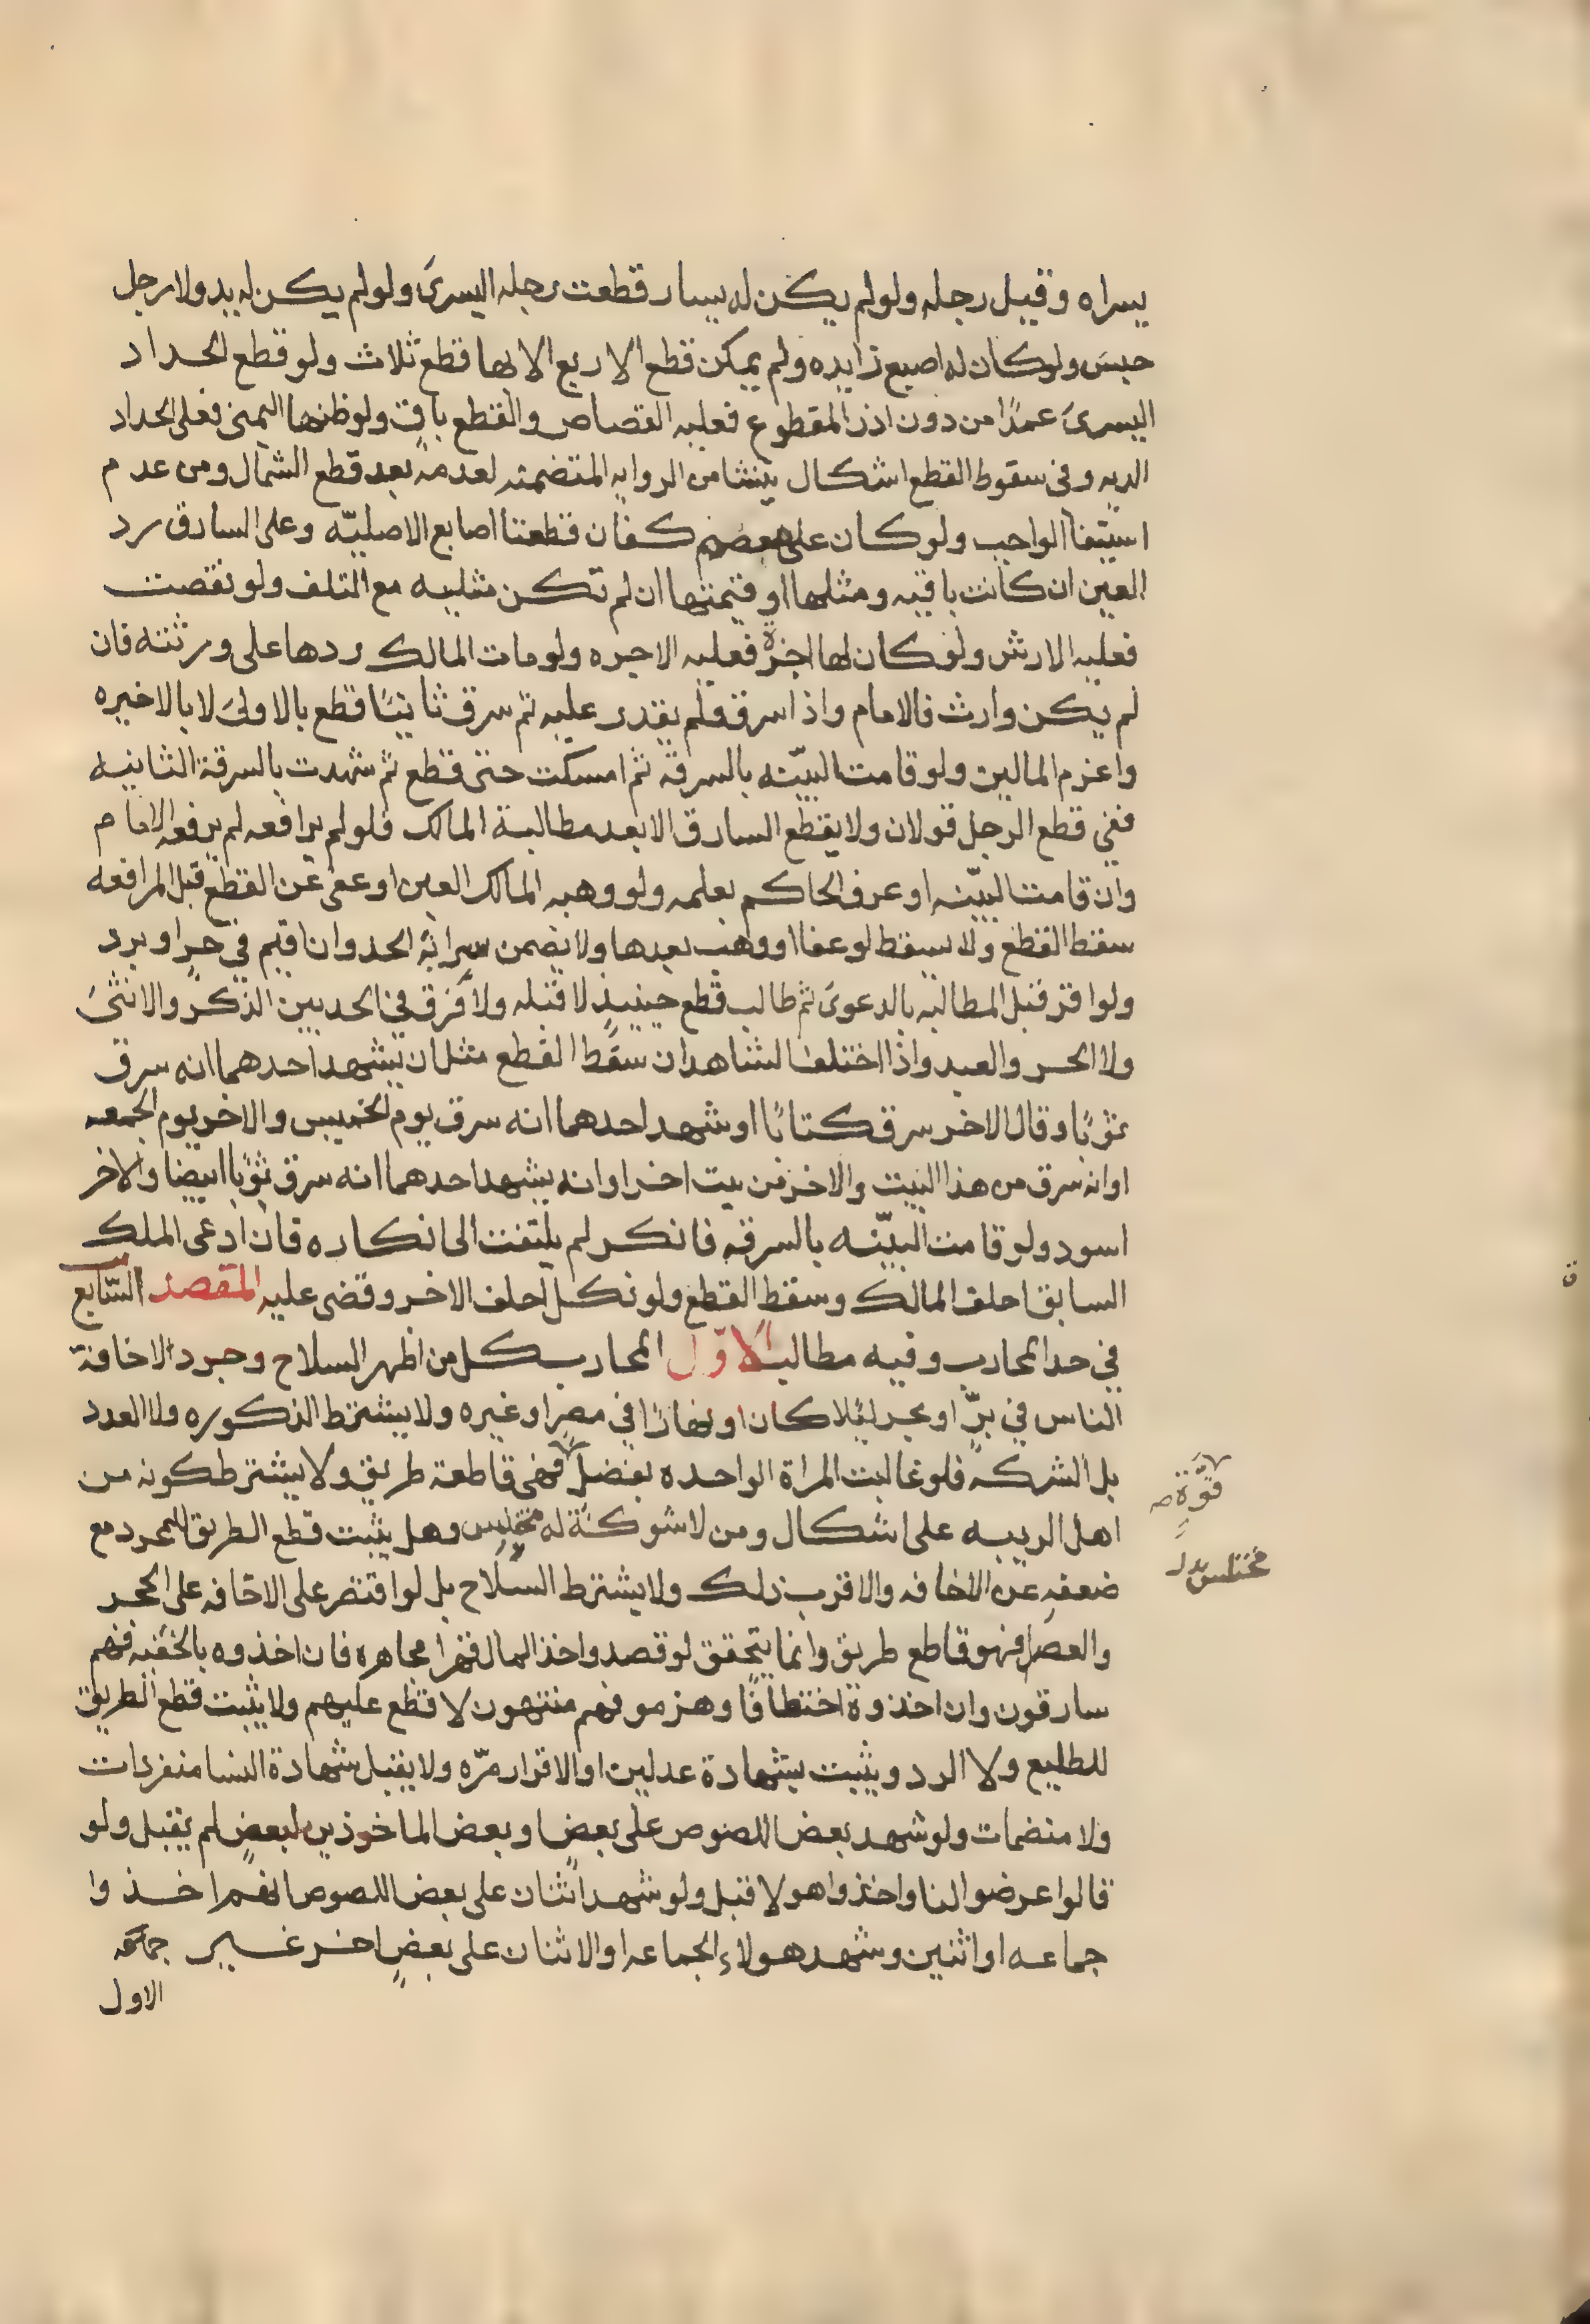 يسراه وقيل رجله ولو لم يكن له يسار قطعت رجله اليسرىَ ولو لم يكن له يد ولا رجل
حبسَ ولو كان له اصبع زايده ولم يمكن قطع الاربع الا بها قطع ثلاث ولو قطع الحداد
اليسرىَ عمدًا من دون اذن المقطوع فعليه القصاص والقطع باقٍ ولو ظنها اليمنى فعلى الحداد
الديه وفي سقوط القطع اشكال ينشا من الروايه المتضمنه لعدمه بعد قطع الشمال ومن عدم
استيفا الواجب ولو كان على معصم كفان قطعنا اصابع الاصليّه وعلى السارق رد
العين ان كانت باقيه ومثلها او قيمتها ان لم تكن مثليه مع التلف ولو نقصت
فعليه الارش ولو كان لها اجرة فعليه الاجره ولو مات المالك ردها على ورثته فان
لم يكن وارث فالامام واذا سرق ولم يقدر عليه ثم سرق ثانيًا قطع بالاولىَ لا بالاخيره
واغرم المالين ولو قامت البيّنه بالسرقه ثم امسكت حتى قطع ثم شهدت بالسرقة الثانيه
ففي قطع الرجل قولان ولا يقطع السارق الا بعد مطالبة المالك فلو لم يرافعه لم يرفعه الامام
وان قامت البيّنه او عرف الحاكم بعلمه ولو وهبه المالك العين او عفى عن القطع قبل المرافعه
سقط القطع ولا يسقط لو عفا او وهب بعدها ولا يضمن سراية الحد وان اقيم في حرٍ او برد
ولو اقر قبل المطالبه بالدعوىَ ثم طالب قطع حينيذٍ لا قبله ولا فرق في الحد بين الذكر والانثىَ
ولا الحر والعبد واذا اختلف الشاهدان سقط القطع مثل ان يشهد احدهما انه سرق
ثوبًا وقال الاخر سرق كتابًا او شهد احدهما انه سرق يوم الخميس والاخر يوم الجمعه
او انه سرق من هذا البيت والاخر من بيت اخر او انه يشهد احدهما انه سرق ثوبًا ابيضا والاخر
اسود ولو قامت البيّنه بالسرقه فانكر لم يلتفت الى انكاره فان ادعى الملك
السابق احلف المالك وسقط القطع ولو نكل احلف الاخر وقضى عليه المقصد السّابع
في حد المحارب وفيه مطالب الاوّل المحارب كل من اظهر السلاح وجرده لاخافة
الناس في برٍّ او بحر ليلا كان او نهارًا في مصر او غيره ولا يشترط الذكوره ولا العدد
بل الشركه فلو غالبت المراة الواحده بفضل فهي قاطعة طريق ولا يشترط كونه من
قوّةٍ صح
اهل الريبه على اشكال ومن لا شوكة له مختلس وهل يثبت قطع الطريق للمجرد مع
مختلس بدل
ضعفهِ عن الاخافه والاقرب ذلك ولا يشترط السّلاح بل لو اقتصر على الاخافه على الحجر
والعصا فهو قاطع طريق وانما يتحقق لو قصدوا اخذ المال قهرا مجاهره فان اخذوه بالخفيه فهم
سارقون وان اخذوة اختطافًا وهزموا فهم منتهبون لا قطع عليهم ولا يثبت قطع الطريق
للطليع ولا الرد ويثبت بشهادة عدلين او الاقرار مرّه ولا يقبل شهادة النسا منفردات
ولا منضمات ولو شهد بعض اللصوص على بعض او بعض الماخوذين لبعضٍ لم يقبل ولو
قالوا عرضوا لنا واخذوا هولا قبل ولو شهد اثنان على بعض اللصوص انهم اخذوا
جماعه او اثنين وشهد هولاء الجماعه او الاثنان على بعضٍ اخر غير جماعه
الاول